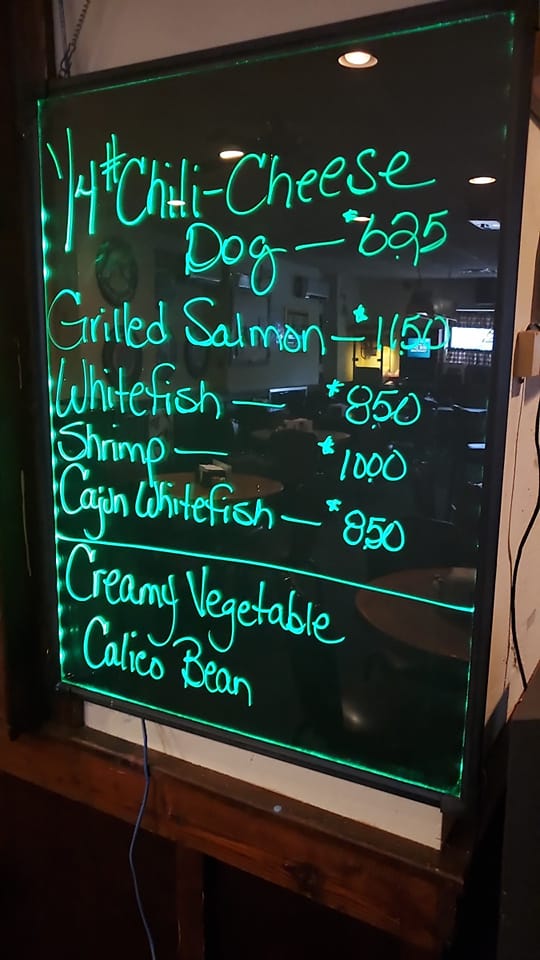 1/4# Chili-Cheese
Dog — *6.25
Grilled Salmon — *11.50
Whitefish — *8.50
Shrimp — *10.00
Cajun Whitefish — *8.50
Creamy Vegetable
Calico Bean